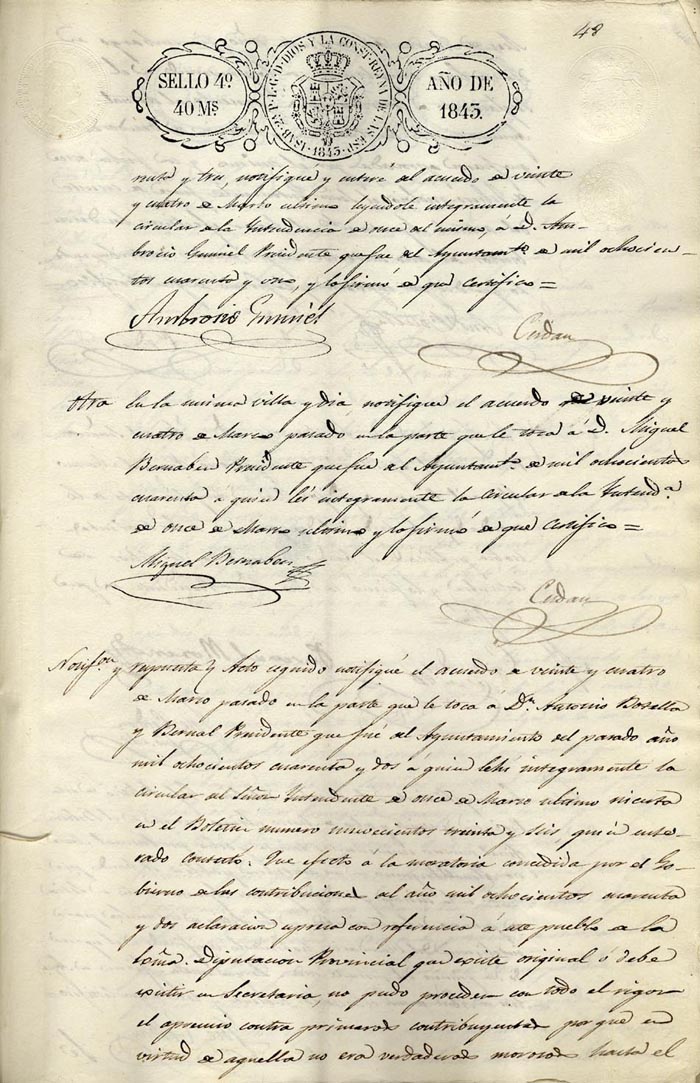 48
SELLO 4º
40 Ms
ISAB. 2ª P.L.G.D. DIOS Y LA CONST. REYNA DE LAS ESP. 1843.
AÑO DE
1843.
y tres, notifiqué y enteré del acuerdo de veinte
y cuatro de Marzo ultimo leyendole integramente la
circular de la Intendencia de once del mismo, á D. Am-
brocio Gumiel Presidente que fue del Ayuntamto. de mil ochocien-
tos cuarenta y uno, y lo firmó de que certifico =
Ambrosio Gumiel
Cerdan
Otra En la misma villa y dia notifique el acuerdo de veinte y
cuatro de Marzo pasado en la parte que le toca á D. Miguel
Bernabeu Presidente que fué del Ayuntamto. de mil ochocientos
cuarenta a quien leí integramente la circular de la Intenda.
de once de Marzo ultimo y lo firmó de que certifico =
Miguel Bernabeu
Cerdan
Notifon. y respuesta Acto seguido notifiqué el acuerdo de veinte y cuatro
de Marzo pasado en la parte que le toca á Dn. Antonio
y Bernal Presidente que fué del Ayuntamiento del pasado año
mil ochocientos cuarenta y dos á quien lehi integramente la
circular del Señor Intendente de once de Marzo ultimo incerta
en el Boletin numero novecientos treinta y seis, que en ente-
rado contestó: Que efecto á la moratoria concedida por el Go-
bierno de las contribuciones del año mil ochocientos cuarenta
y dos aclaracion espresa con referencia á este pueblo de la
Exma. Diputacion Provincial que existe original ó debe
existir en Secretaria, no pudo proceder con todo el rigor
el apremio contra primeros contribuyentes porque en
virtud de aquella no eran verdaderos morosos hasta el